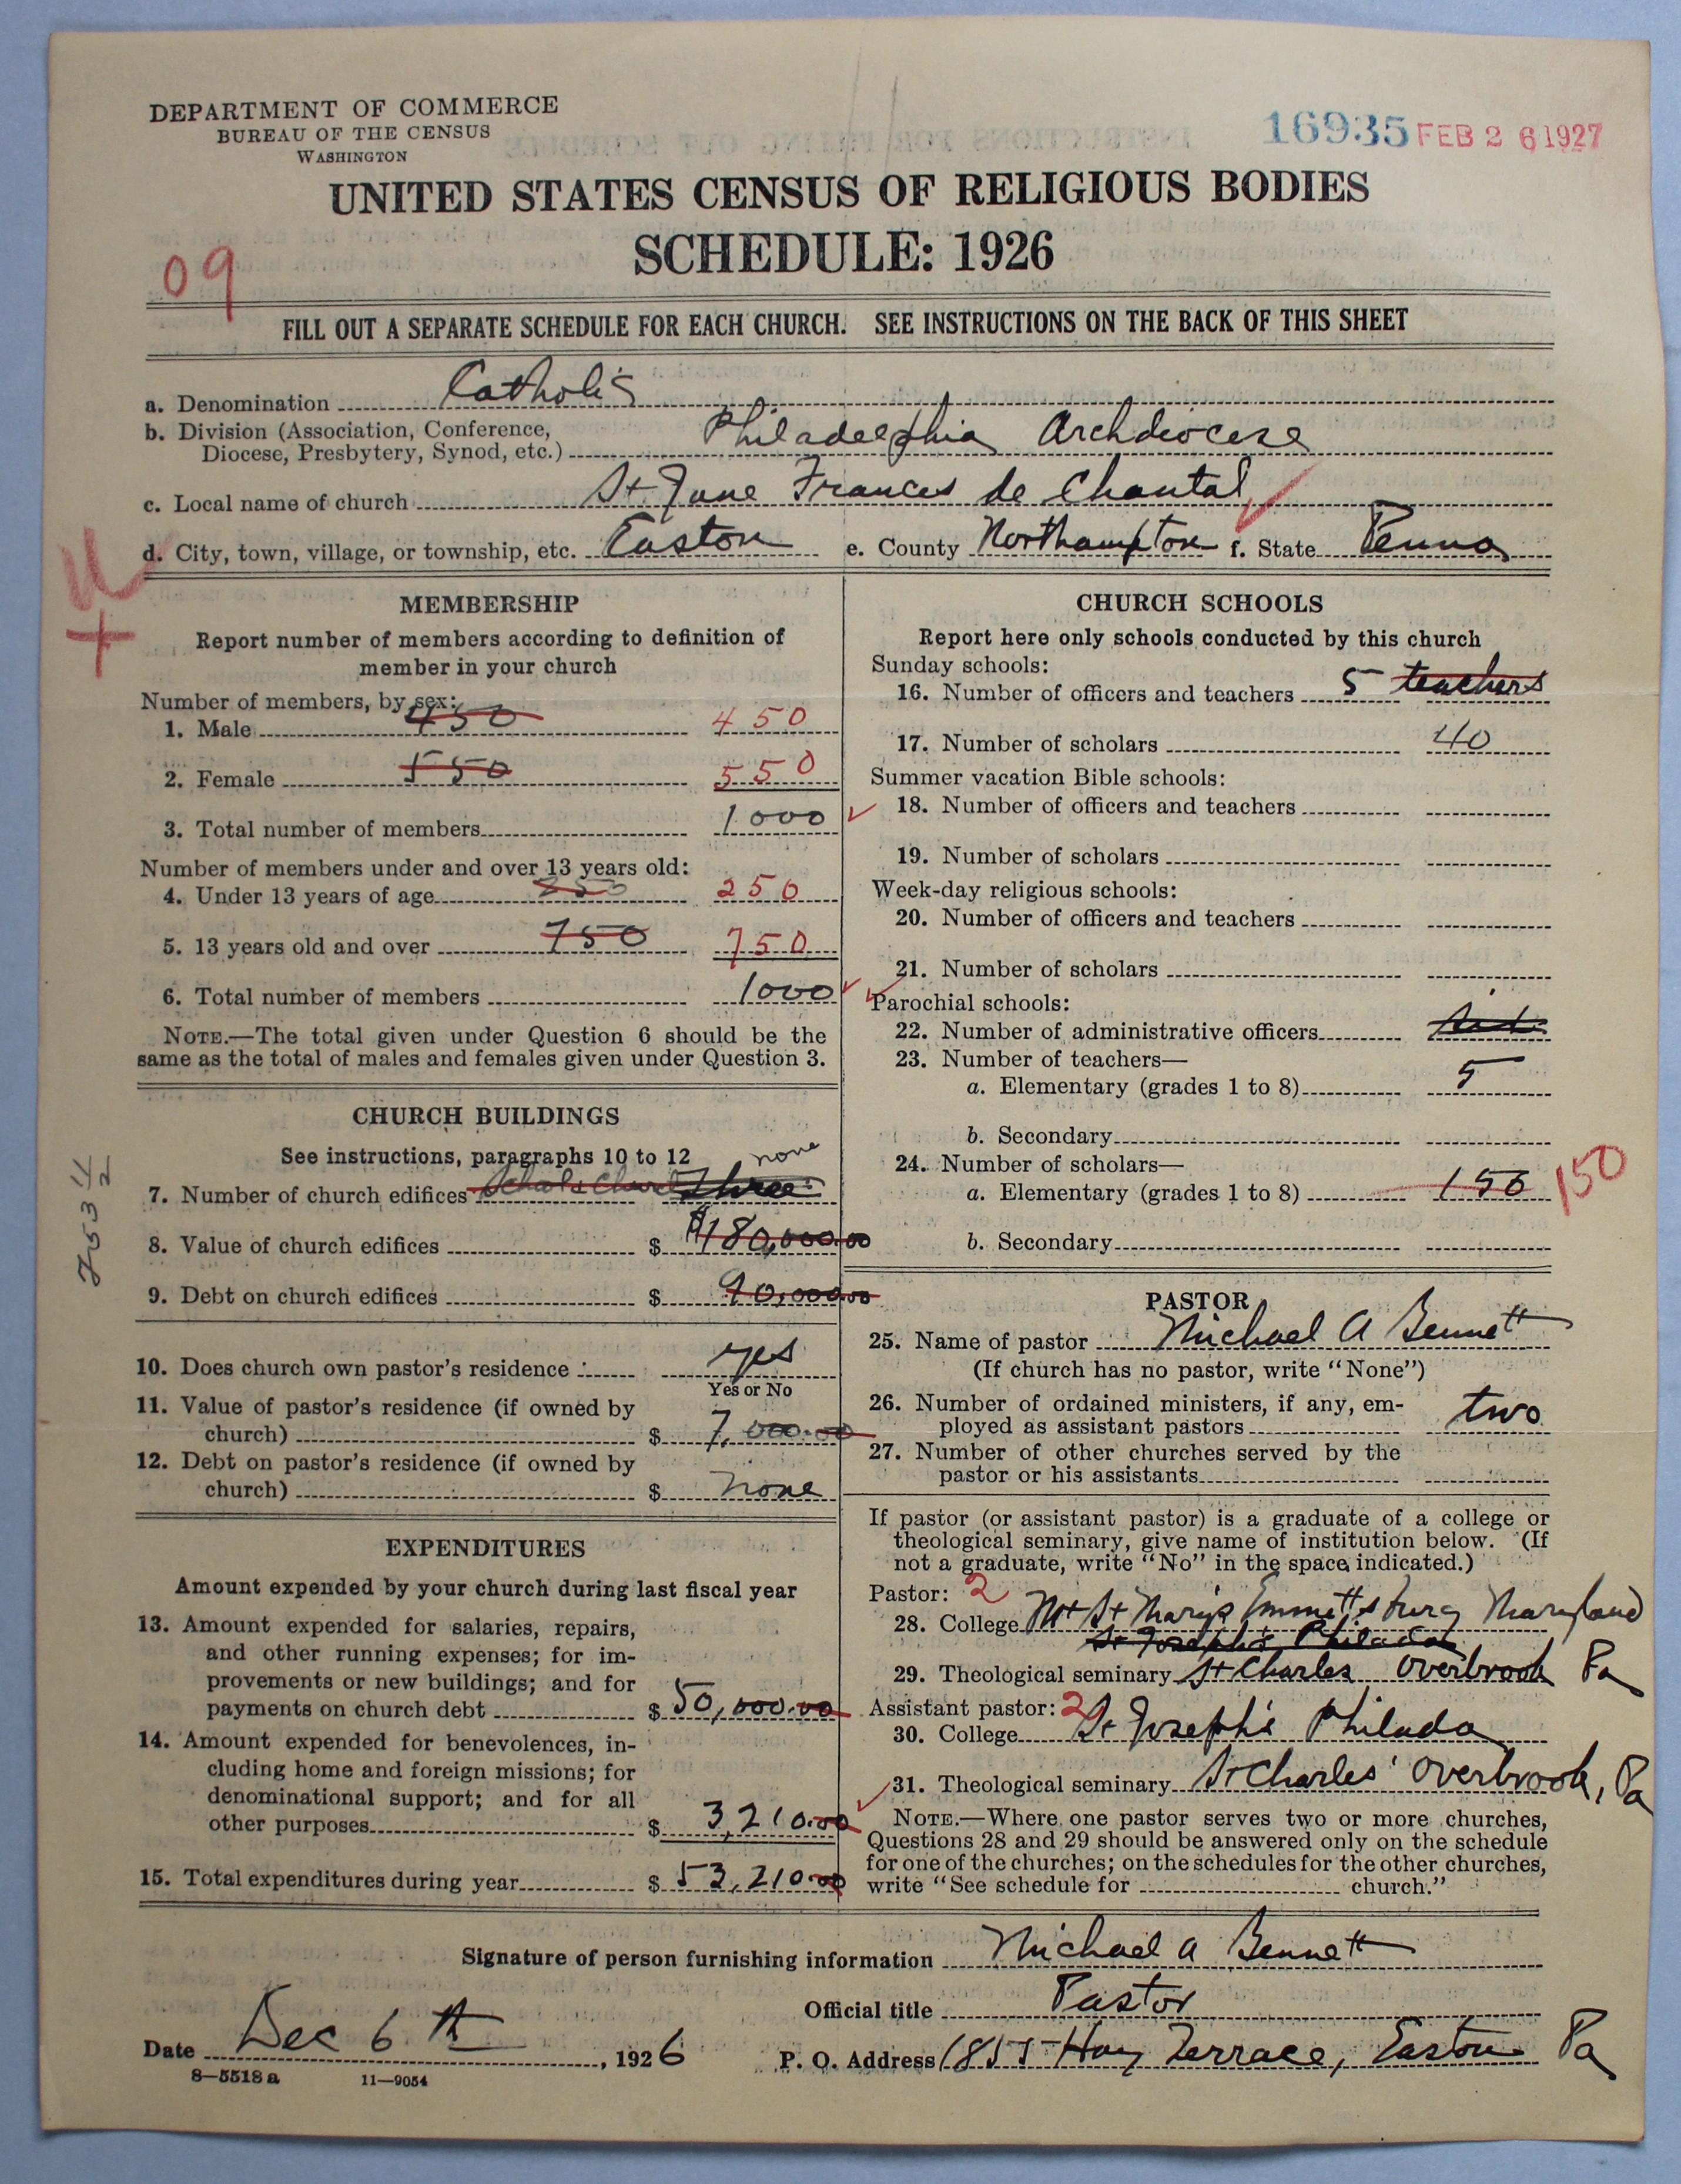 DEPARTMENT OF COMMERCE
BUREAU OF THE CENSUS
WASHINGTON
16935 FEB 26 1927
UNITED STATES CENSUS OF RELIGIOUS BODIES
SCHEDULE: 1926
09
FILL OUT A SEPARATE SCHEDULE FOR EACH CHURCH. SEE INSTRUCTIONS ON THE BACK OF THIS SHEET
a. Denomination Catholic
b. Division (Association, Conference,
Diocese, Presbytery, Synod, etc.) Philadelphia Archdiocese
c. Local name of church St Jane Frances de Chantal
d. City, town, village, or township, etc. Easton e. County Northampton f. State Penna
MEMBERSHIP
Report number of members according to definition of
member in your church
Number of members, by sex:
1. Male 450 450
2. Female 550 550
3. Total number of members 1000
Number of members under and over 13 years old:
4. Under 13 years of age 250 250
5. 13 years old and over 750 750
6. Total number of members 1000
NOTE.—The total given under Question 6 should be the
same as the total of males and females given under Question 3.
CHURCH BUILDINGS
See instructions, paragraphs 10 to 12 none
7. Number of church edifices Three
8. Value of church edifices $ $180,000.00
9. Debt on church edifices $ 90,000.00
10. Does church own pastor's residence : yes
Yes or No
11. Value of pastor's residence (if owned by
church) $ 7,000.00
12. Debt on pastor's residence (if owned by
church) $ none
EXPENDITURES
Amount expended by your church during last fiscal year
13. Amount expended for salaries, repairs,
and other running expenses; for im-
provements or new buildings; and for
payments on church debt $ 50,000.00
14. Amount expended for benevolences, in-
cluding home and foreign missions; for
denominational support; and for all
other purposes $ 3,210.00
15. Total expenditures during year $ 53,210.00
CHURCH SCHOOLS
Report here only schools conducted by this church
Sunday schools:
16. Number of officers and teachers 5 teachers
17. Number of scholars 40
Summer vacation Bible schools:
18. Number of officers and teachers
19. Number of scholars
Week-day religious schools:
20. Number of officers and teachers
21. Number of scholars
Parochial schools:
22. Number of administrative officers
23. Number of teachers—
a. Elementary (grades 1 to 8) 5
b. Secondary
24. Number of scholars—
a. Elementary (grades 1 to 8) 150 150
b. Secondary
PASTOR
25. Name of pastor Michael A Bennett
(If church has no pastor, write "None")
26. Number of ordained ministers, if any, em-
ployed as assistant pastors two
27. Number of other churches served by the
pastor or his assistants
If pastor (or assistant pastor) is a graduate of a college or
theological seminary, give name of institution below. (If
not a graduate, write "No" in the space indicated.)
Pastor: 2
28. College Mt St Marys Emmettsburg Maryland
St Joseph's Philada
29. Theological seminary St Charles Overbrook Pa
Assistant pastor: 2
30. College St Joseph's Philada
31. Theological seminary St Charles' Overbrook, Pa
NOTE.—Where one pastor serves two or more churches,
Questions 28 and 29 should be answered only on the schedule
for one of the churches; on the schedules for the other churches,
write "See schedule for church."
Signature of person furnishing information Michael A Bennett
Official title Pastor
Date Dec 6th, 1926 P. O. Address 1855 Hay Terrace, Easton Pa
8—5518a 11—9054